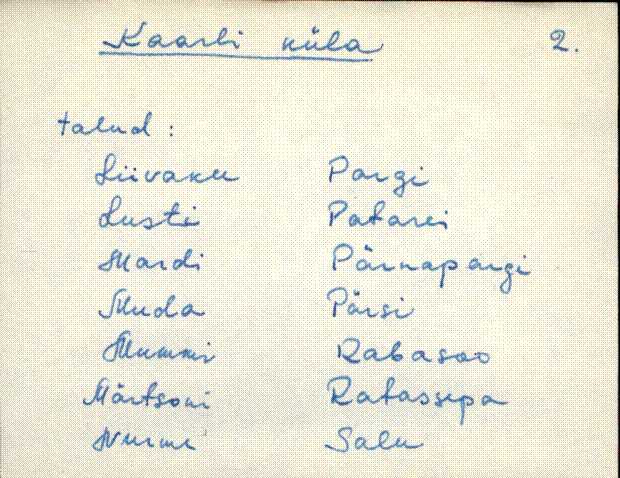 Kaarli küla 2.
talud:
Liivaku Pargi
Lusti Patarei
Mardi Pärnapargi
Muda Pärsi
Mummi Rabasoo
Märtsoni Ratassepa
Nurme Salu